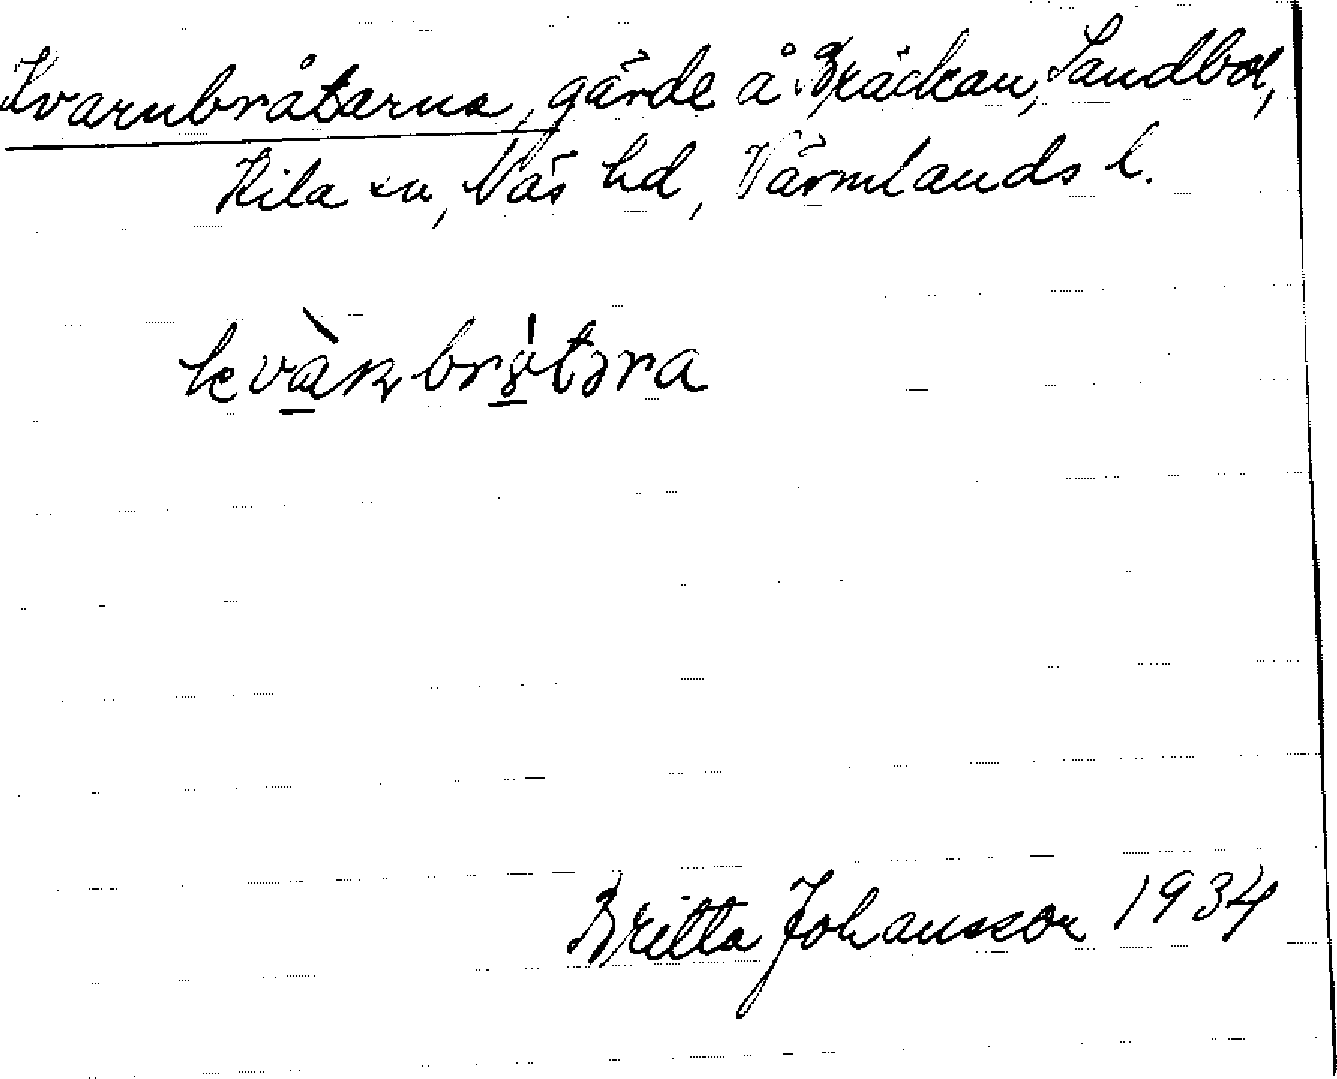 Kvarnbråtarna, gärde å Bräckan, Sandbol,
Kila sn, Näs hd, Värmlands l.
Britta Johansson 1934